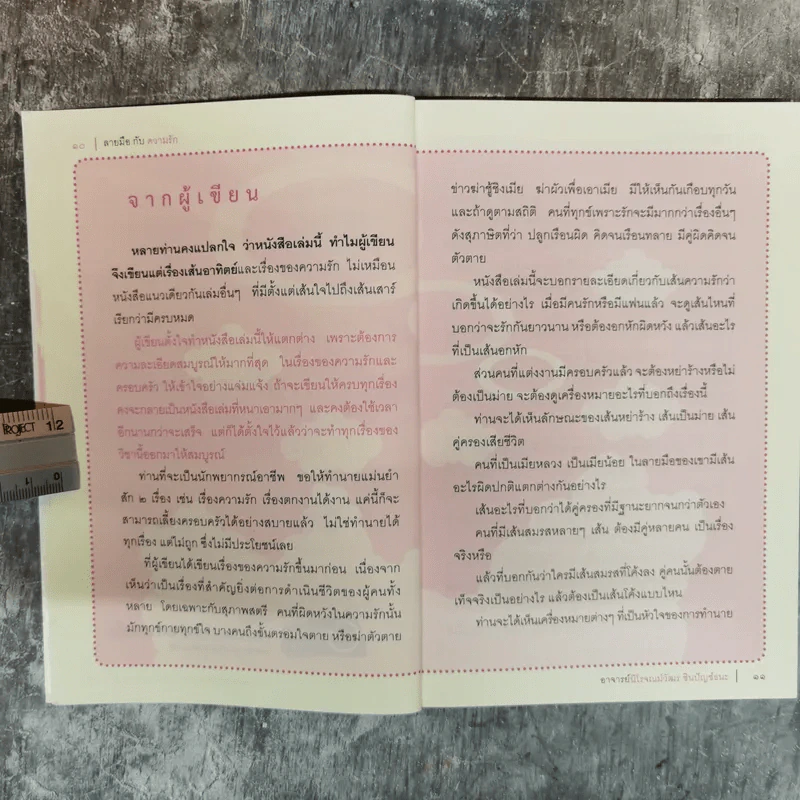 ๑๐ | ลายมือ กับ ความรัก
จากผู้เขียน
หลายท่านคงแปลกใจ ว่าหนังสือเล่มนี้ ทำไมผู้เขียน
จึงเขียนแต่เรื่องเส้นอาทิตย์และเรื่องของความรัก ไม่เหมือน
หนังสือแนวเดียวกันเล่มอื่นๆ ที่มีตั้งแต่เส้นใจไปถึงเส้นเสาร์
เรียกว่ามีครบหมด
ผู้เขียนตั้งใจทำหนังสือเล่มนี้ให้แตกต่าง เพราะต้องการ
ความละเอียดสมบูรณ์ให้มากที่สุด ในเรื่องของความรักและ
ครอบครัว ให้เข้าใจอย่างแจ่มแจ้ง ถ้าจะเขียนให้ครบทุกเรื่อง
คงจะกลายเป็นหนังสือเล่มที่หนาเอามากๆ และคงต้องใช้เวลา
อีกนานกว่าจะเสร็จ แต่ก็ได้ตั้งใจไว้แล้วว่าจะทำทุกเรื่องของ
วิชานี้ออกมาให้สมบูรณ์
ท่านที่จะเป็นนักพยากรณ์อาชีพ ขอให้ทำนายแม่นยำ
สัก ๒ เรื่อง เช่น เรื่องความรัก เรื่องตกงานได้งาน แค่นี้ก็จะ
สามารถเลี้ยงครอบครัวได้อย่างสบายแล้ว ไม่ใช่ทำนายได้
ทุกเรื่อง แต่ไม่ถูก ซึ่งไม่มีประโยชน์เลย
ที่ผู้เขียนได้เขียนเรื่องของความรักขึ้นมาก่อน เนื่องจาก
เห็นว่าเป็นเรื่องที่สำคัญยิ่งต่อการดำเนินชีวิตของผู้คนทั้ง
หลาย โดยเฉพาะกับสุภาพสตรี คนที่ผิดหวังในความรักนั้น
มักทุกข์กายทุกข์ใจ บางคนถึงขั้นตรอมใจตาย หรือฆ่าตัวตาย
ข่าวฆ่าชู้ชิงเมีย ฆ่าผัวเพื่อเอาเมีย มีให้เห็นกันเกือบทุกวัน
และถ้าดูตามสถิติ คนที่ทุกข์เพราะรักจะมีมากกว่าเรื่องอื่นๆ
ดังสุภาษิตที่ว่า ปลูกเรือนผิด คิดจนเรือนทลาย มีคู่ผิดคิดจน
ตัวตาย
หนังสือเล่มนี้จะบอกรายละเอียดเกี่ยวกับเส้นความรักว่า
เกิดขึ้นได้อย่างไร เมื่อมีคนรักหรือมีแฟนแล้ว จะดูเส้นไหนที่
บอกว่าจะรักกันยาวนาน หรือต้องอกหักผิดหวัง แล้วเส้นอะไร
ที่เป็นเส้นอกหัก
ส่วนคนที่แต่งงานมีครอบครัวแล้ว จะต้องหย่าร้างหรือไม่
ต้องเป็นม่าย จะต้องดูเครื่องหมายอะไรที่บอกถึงเรื่องนี้
ท่านจะได้เห็นลักษณะของเส้นหย่าร้าง เส้นเป็นม่าย เส้น
คู่ครองเสียชีวิต
คนที่เป็นเมียหลวง เป็นเมียน้อย ในลายมือของเขามีเส้น
อะไรผิดปกติแตกต่างกันอย่างไร
เส้นอะไรที่บอกว่าได้คู่ครองที่มีฐานะยากจนกว่าตัวเอง
คนที่มีเส้นสมรสหลายๆ เส้น ต้องมีคู่หลายคน เป็นเรื่อง
จริงหรือ
แล้วที่บอกกันว่าใครมีเส้นสมรสที่โค้งลง คู่คนนั้นต้องตาย
เท็จจริงเป็นอย่างไร แล้วต้องเป็นเส้นโค้งแบบไหน
ท่านจะได้เห็นเครื่องหมายต่างๆ ที่เป็นหัวใจของการทำนาย
อาจารย์ | ๑๑
PROJECT 12
10